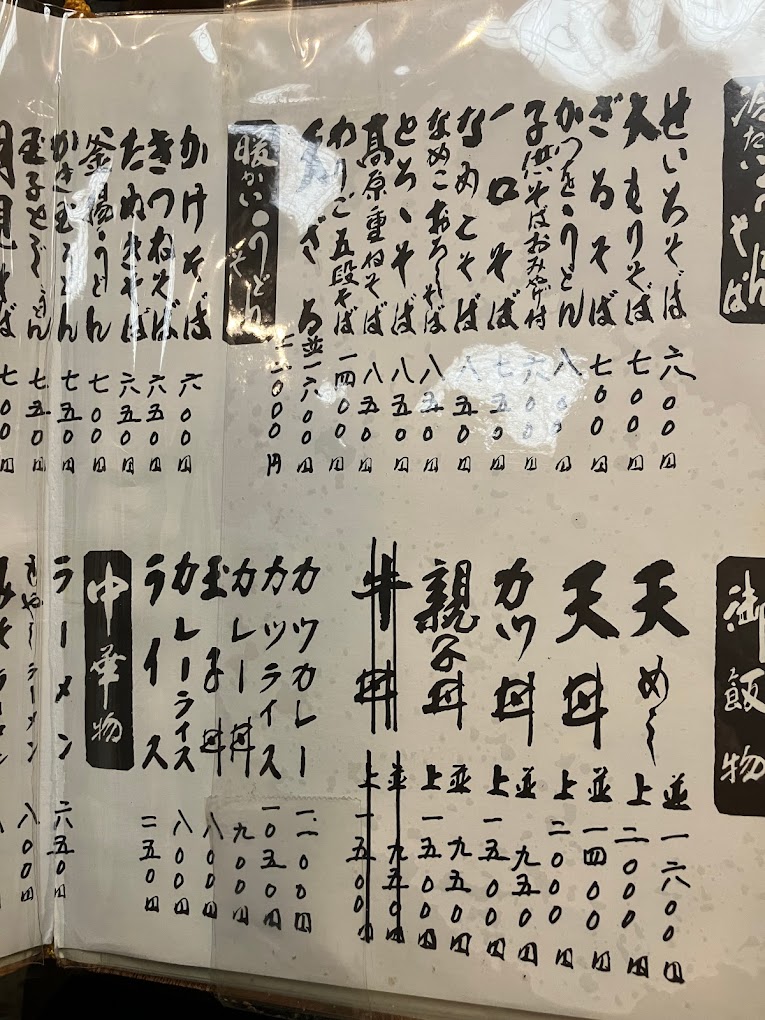 冷たい
そば
せいろそば 六〇〇円
大もりそば 七〇〇円
ざるそば 七〇〇円
八〇〇円
子供そばおみやげ付 六〇〇円
一口そば 七五〇円
なめこそば 八五〇円
なめこおろしそば 八五〇円
とろゝそば 八五〇円
高原重ねそば 八五〇円
わりご五段そば 一四〇〇円
ざる 並一六〇〇円
暖かい
うどん
そば
かけそば 六〇〇円
きつねそば 六五〇円
たぬきそば 六五〇円
釜揚うどん 七〇〇円
かき玉うどん 七五〇円
玉子とじうどん 七五〇円
月見そば 七〇〇円
御飯物
天めし 並一六〇〇円
上二〇〇〇円
天丼 並一四〇〇円
上二〇〇〇円
カツ丼 並九五〇円
上一五〇〇円
親子丼 並九五〇円
上一五〇〇円
牛丼 並九五〇円
上一五〇〇円
カツカレー
カツライス 一〇五〇円
カレー丼 九〇〇円
玉子丼 八〇〇円
カレーライス 八〇〇円
ライス 二五〇円
中華物
ラーメン 六五〇円
もやしラーメン 八〇〇円
みそラーメン